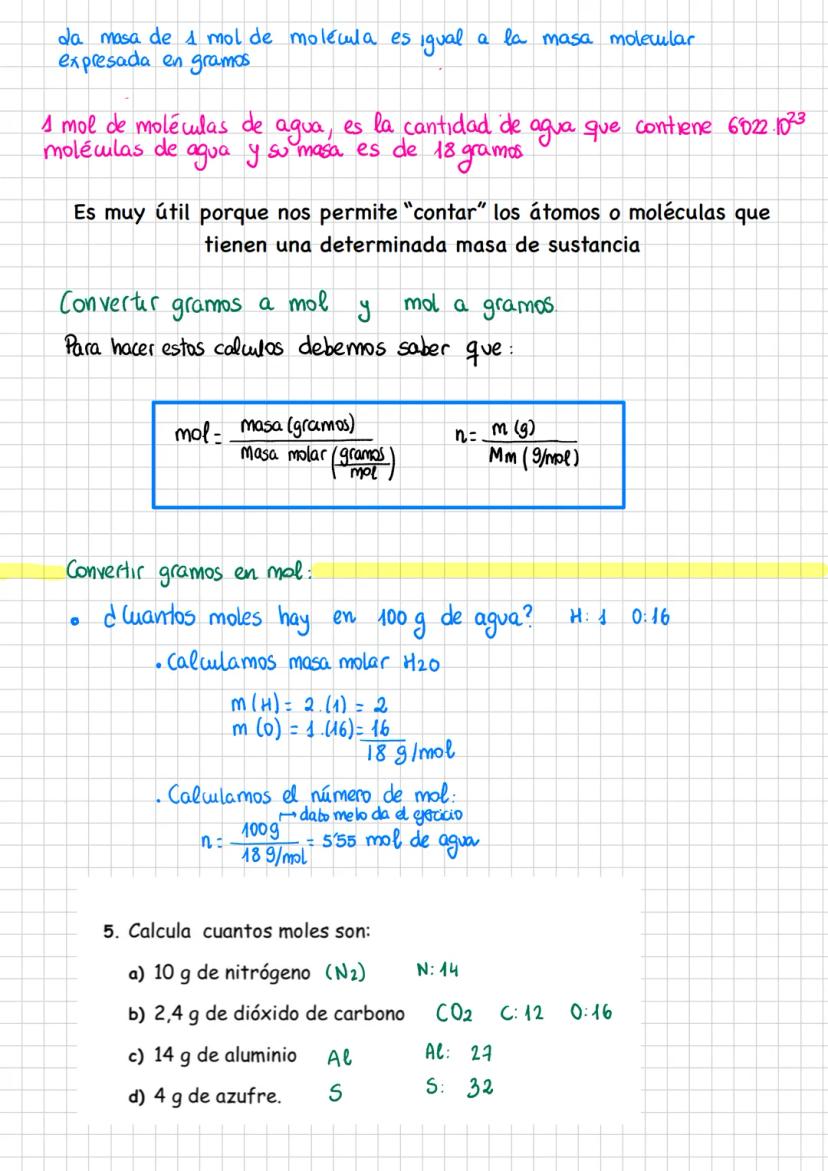 La masa de 1 mol de molécula es igual a la masa molecular
expresada en gramos
1 mol de moléculas de agua, es la cantidad de agua que contiene 6'022·10²³
moléculas de agua y su masa es de 18 gramos
Es muy útil porque nos permite "contar" los átomos o moléculas que
tienen una determinada masa de sustancia
Convertir gramos a mol y mol a gramos.
Para hacer estos calculos debemos saber que:
mol = masa (gramos) / Masa molar (gramos/mol)
n = m (g) / Mm (g/mol)
Convertir gramos en mol:
• ¿Cuantos moles hay en 100 g de agua? H: 1 O: 16
• Calculamos masa molar H2O
m (H) = 2.(1) = 2
m (O) = 1.(16) = 16
18 g/mol
• Calculamos el número de mol:
↦ dato me lo da el ejercicio
n = 100g / 18 g/mol = 5'55 mol de agua
5. Calcula cuantos moles son:
a) 10 g de nitrógeno (N2) N: 14
b) 2,4 g de dióxido de carbono CO2 C: 12 O: 16
c) 14 g de aluminio Al Al: 27
d) 4 g de azufre. S S: 32